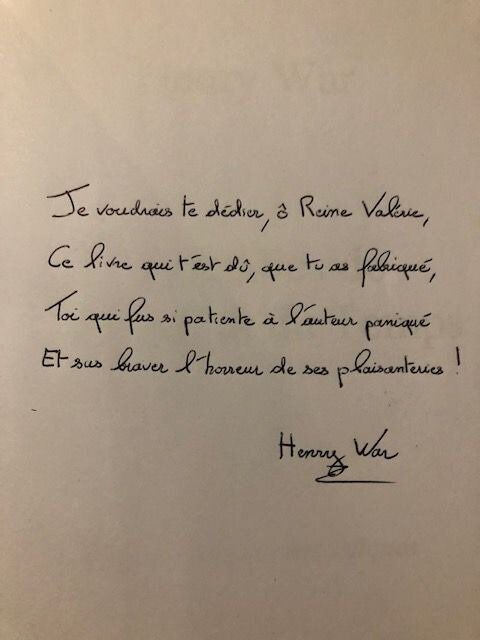 Je voudrais te dédier, ô Reine Valérie,
Ce livre qui t'est dû, que tu as fabriqué,
Toi qui fus si patiente à l'auteur paniqué
Et sus braver l'horreur de ses plaisanteries !
Henry War